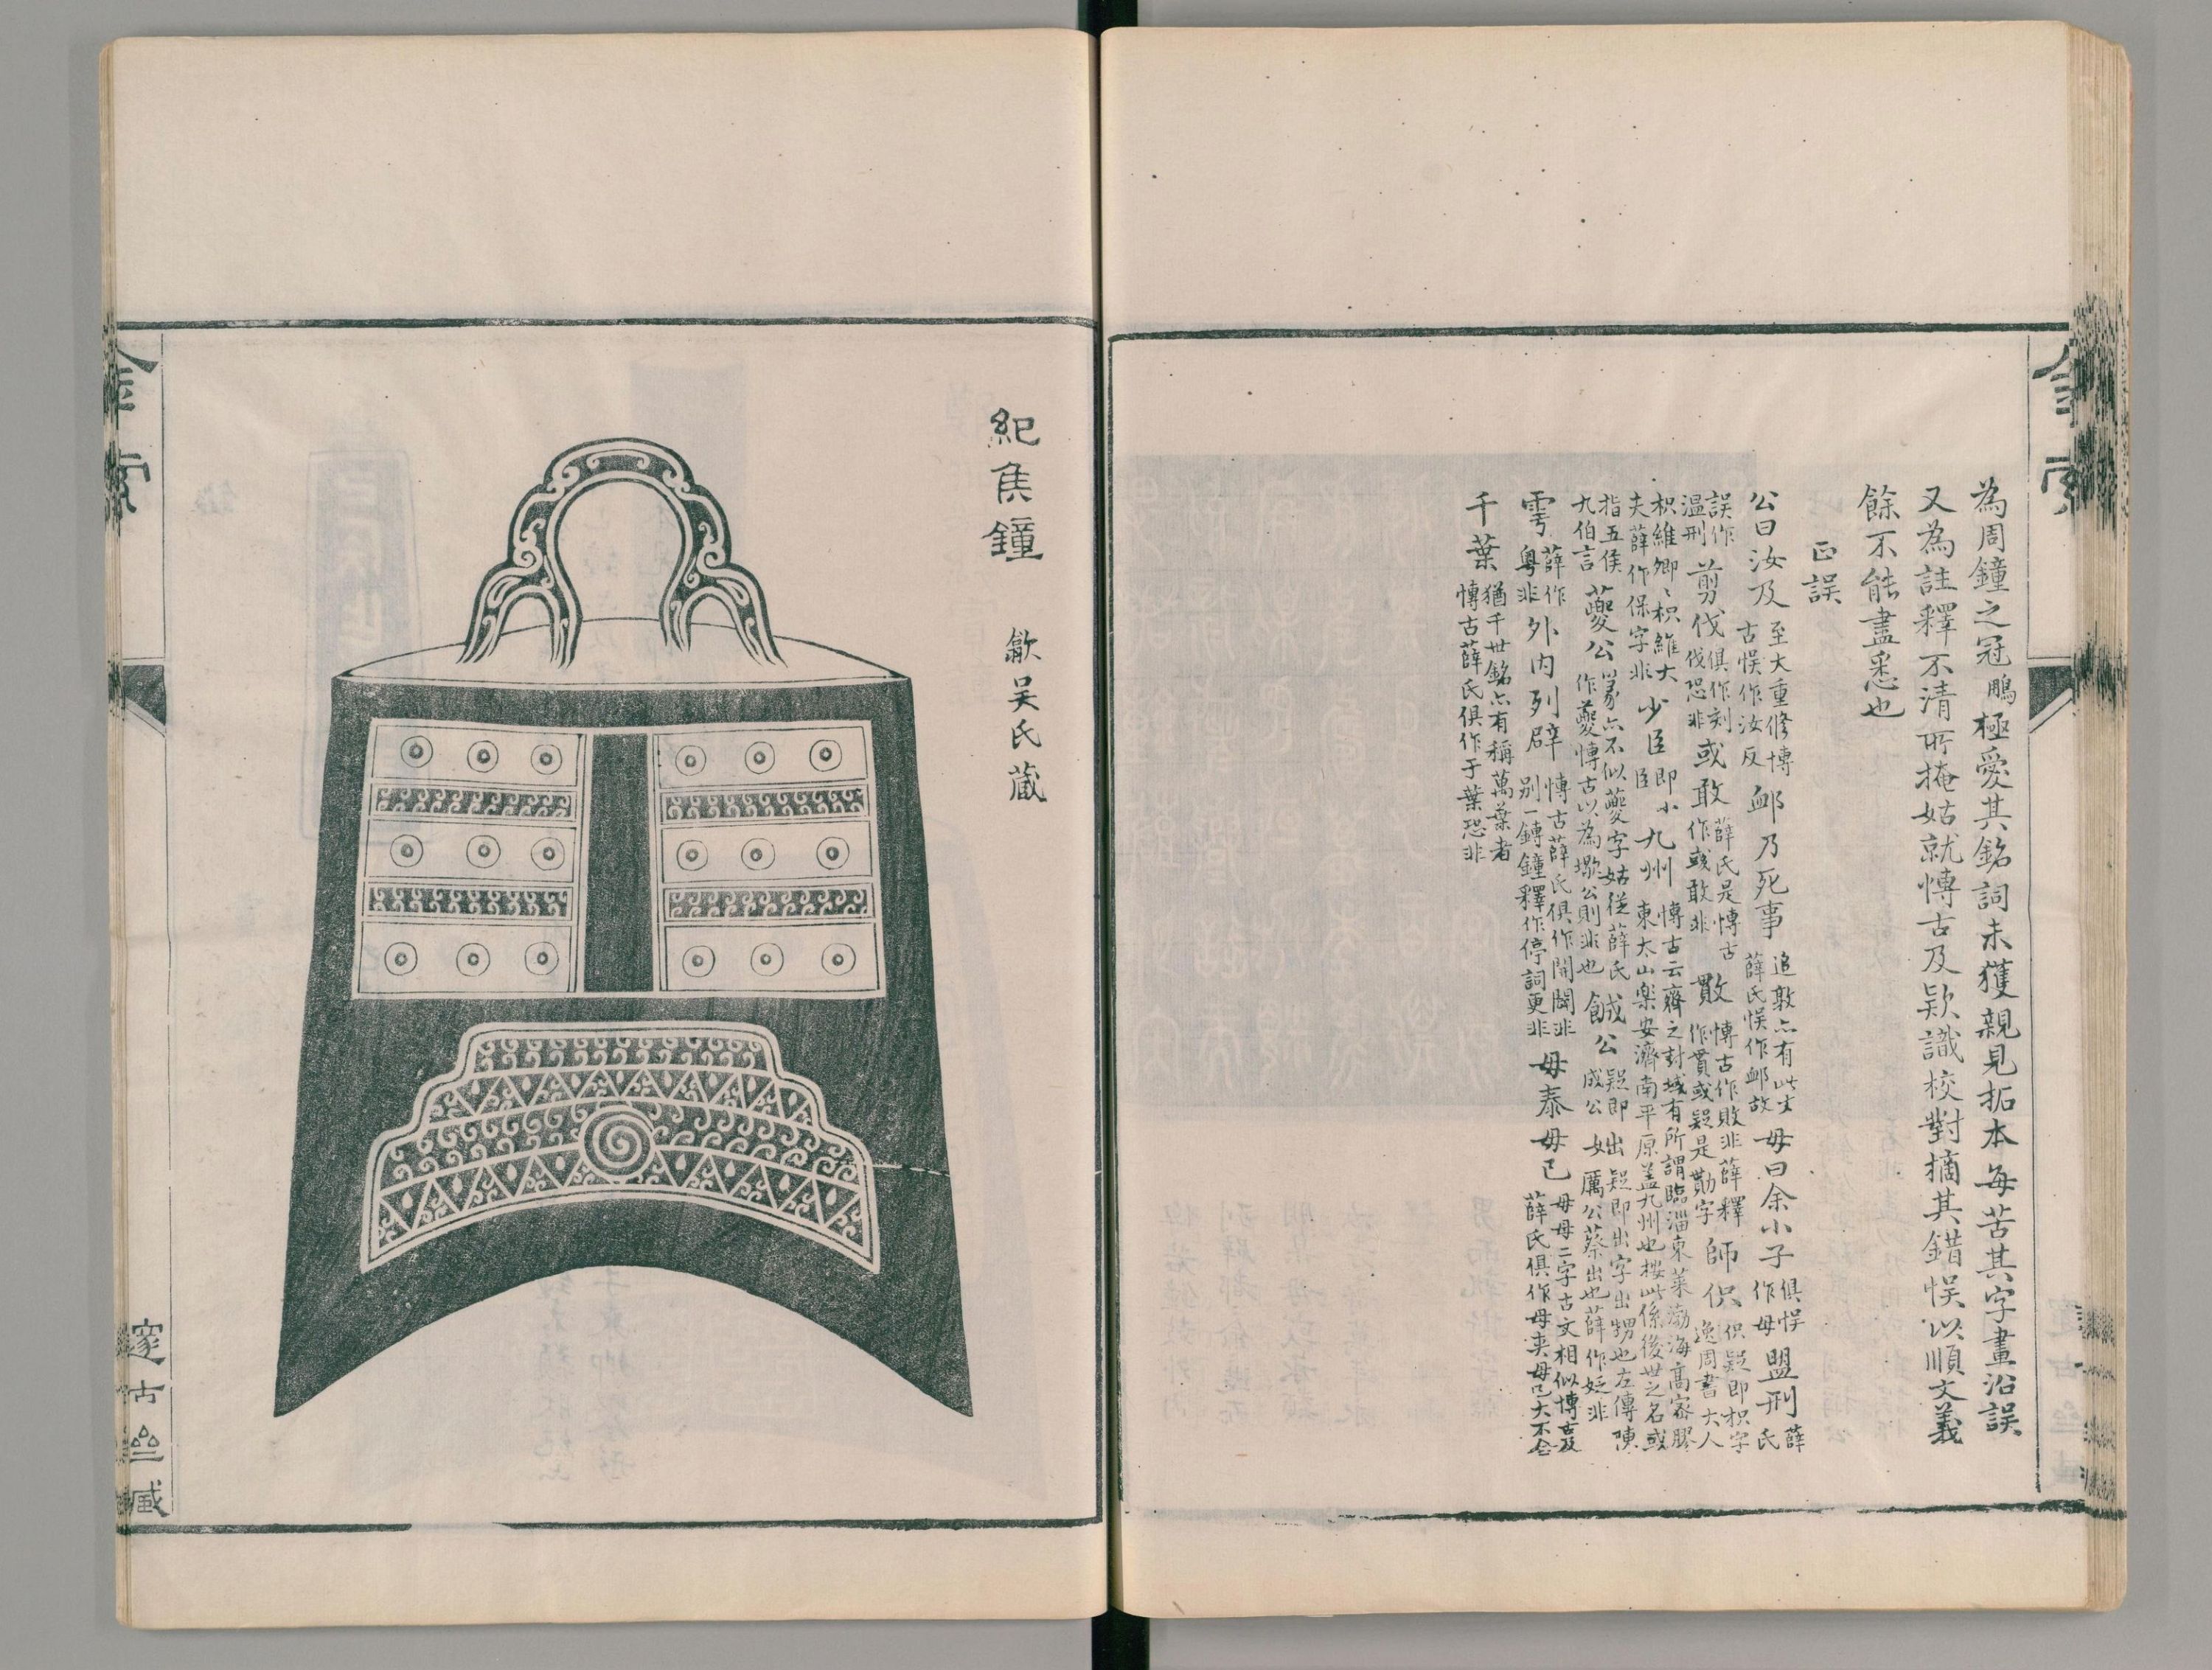 金索
為周鐘之冠鵬極愛其銘詞未獲親見拓本每苦其字畫沿誤
又為註釋不清所掩姑就博古及欵識校對摘其錯悞以順文義
餘不能盡悉也
正誤
公曰汝及
至大重修博
古悞作汝反
䘏乃死事
追敦亦有此文
薛氏悞作䘏故
毋曰余小子
俱悞
作母
盟刑
薛
氏
誤作
溫刑
剪伐
俱作刻
伐恐非
或敢
薛氏是博古
作或敢非
博古作敗非薛釋
作貫或疑是勩字
師伿
伿疑即枳字
逸周書大人
枳維卿卿枳維大
夫薛作保字非
少臣
即小
臣
九州
博古云齊之封域有所謂臨淄東萊渤海高密膠
東太山樂安濟南平原蓋九州也按此係後世之名或
指五侯
九伯言
䕫公
篆亦不似䕫字姑從薛氏
作䕫博古以為墽公則非也
餓公
疑即
成公
女
出
疑即出字出甥也左傳陳
厲公蔡出也薛作妃非
雩
薛作
粤非
外内列辟
博古薛氏俱作開闢非
別一鏄鐘釋作停詞更非
毋泰毋已
毋母二字古文相似博古及
薛氏俱作母夷母已大不合
千葉
猶千世銘亦有稱萬葉者
博古薛氏俱作于葉恐非
紀侯鐘
歙吴氏藏
金索
邃古齋藏